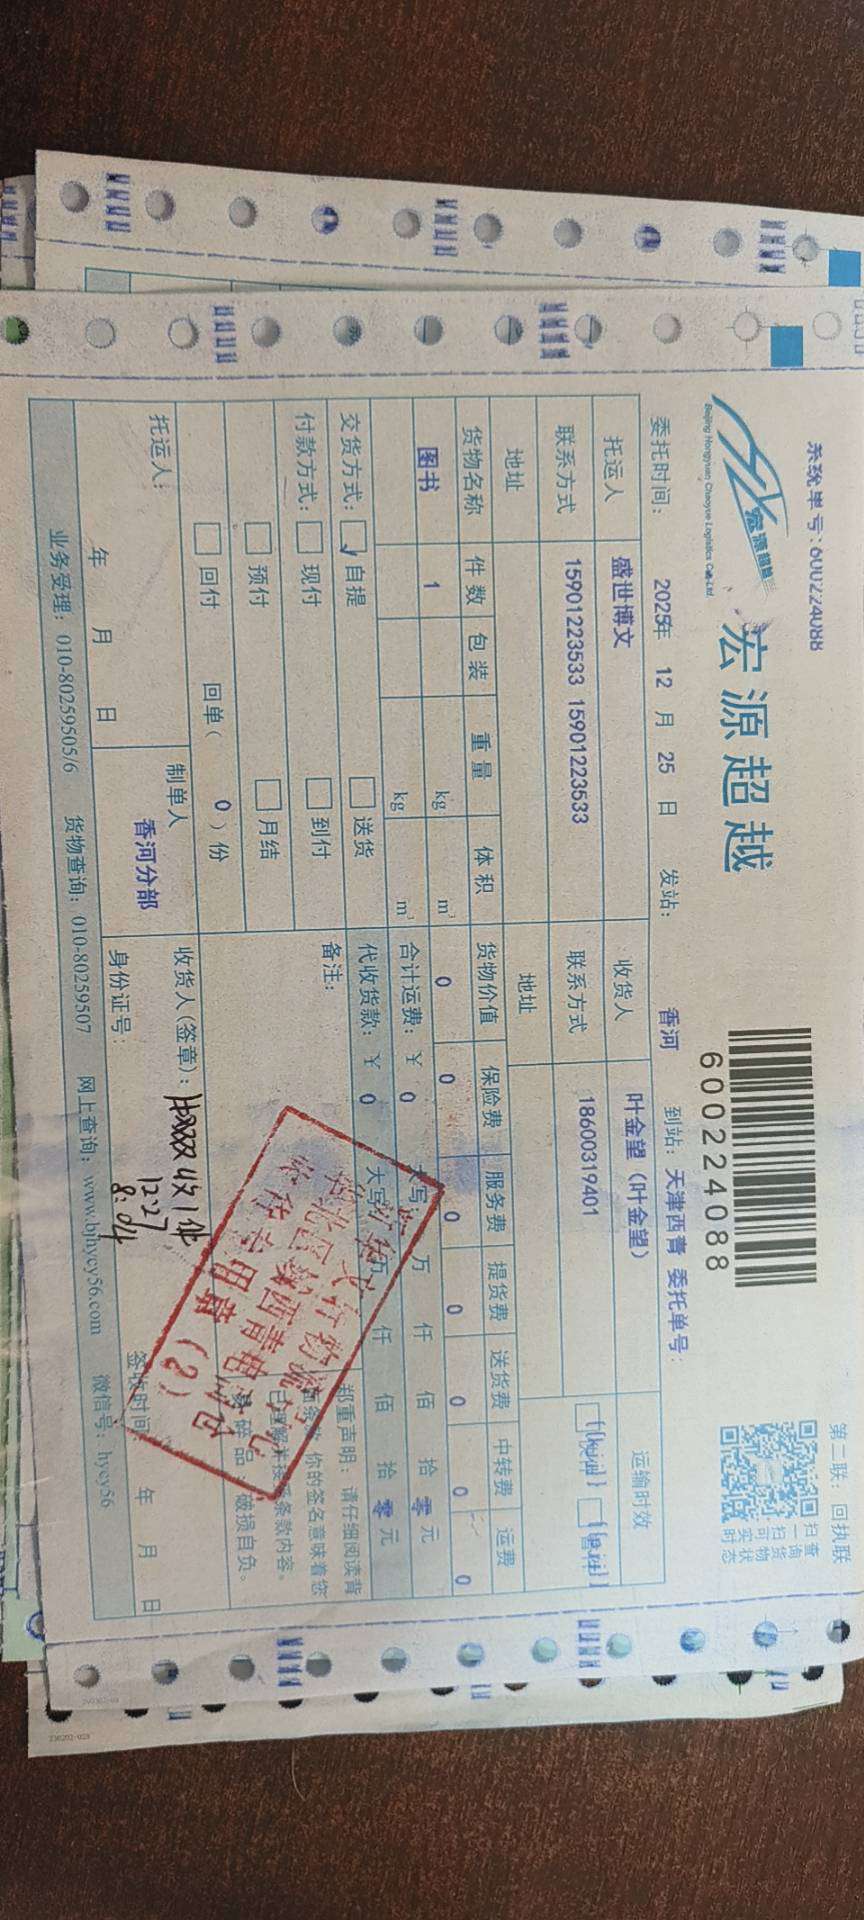 系统单号:600224088
第二联：回执联
宏源超越
Beijing Hongyuan Chaoyue Logistics Co.,Ltd.
宏源超越
600224088
扫查
一询
扫货
可物
实状
时态
委托时间： 2025年 12 月 25 日 发站： 香河 到站：天津西青 委托单号：
托运人 盛世博文 收货人 叶金望（叶金望） 运输时效
联系方式 15901223533 15901223533 联系方式 18600319401
地址 地址
货物名称 件数 包装 重量 体积 货物价值 保险费 服务费 提货费 送货费 中转费 运费
图书 1 kg m³ 0 0 0 0 0 0 0
kg m³ 合计运费：￥ 0 大写 万 仟 佰 拾 零 元
交货方式： 自提 送货 代收货款：￥ 0 大写 万 仟 佰 拾 零 元
付款方式： 现付 到付 备注：
预付 月结
回付 回单（ 0 ）份
郑重声明：请仔细阅读背
面条款，你的签名意味着您
已理解并接受条款内容。
易碎品，破损自负。
托运人： 制单人 收货人(签章)： 收1件
香河分部 12.27
年 月 日 身份证号： 8:04 签收时间： 年 月 日
业务受理：010-80259505/6 货物查询：010-80259507 网上查询：www.bjhycy56.com 微信号：hycy56
230202-023